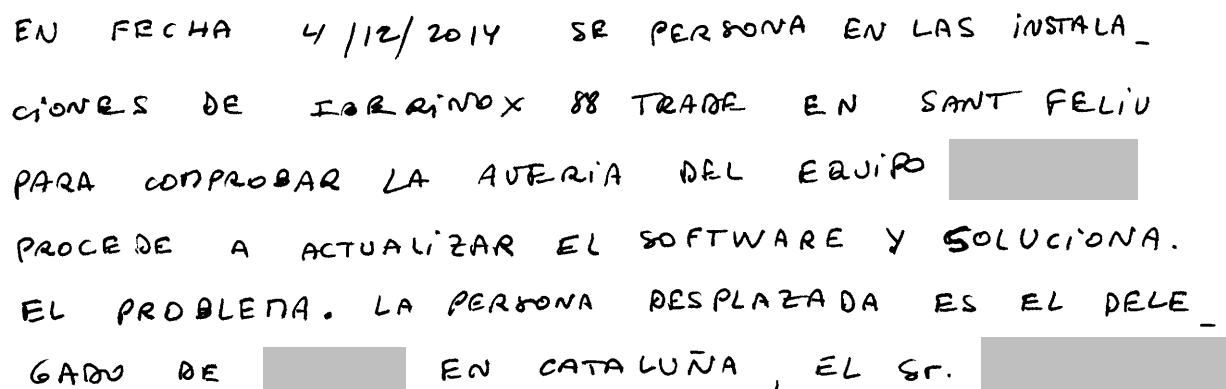 EN FECHA 4/12/2014 SE PERSONA EN LAS iNSTALA_
CiONES DE IBERRiNOX 88 TRADE EN SANT FELiU
PARA COMPROBAR LA AVERiA DEL EQUiPO
PROCEDE A ACTUALiZAR EL SOFTWARE Y SOLUCiONA.
EL PROBLEMA. LA PERSONA DESPLAZADA ES EL DELE_
GADO DE EN CATALUÑA, EL Sr.